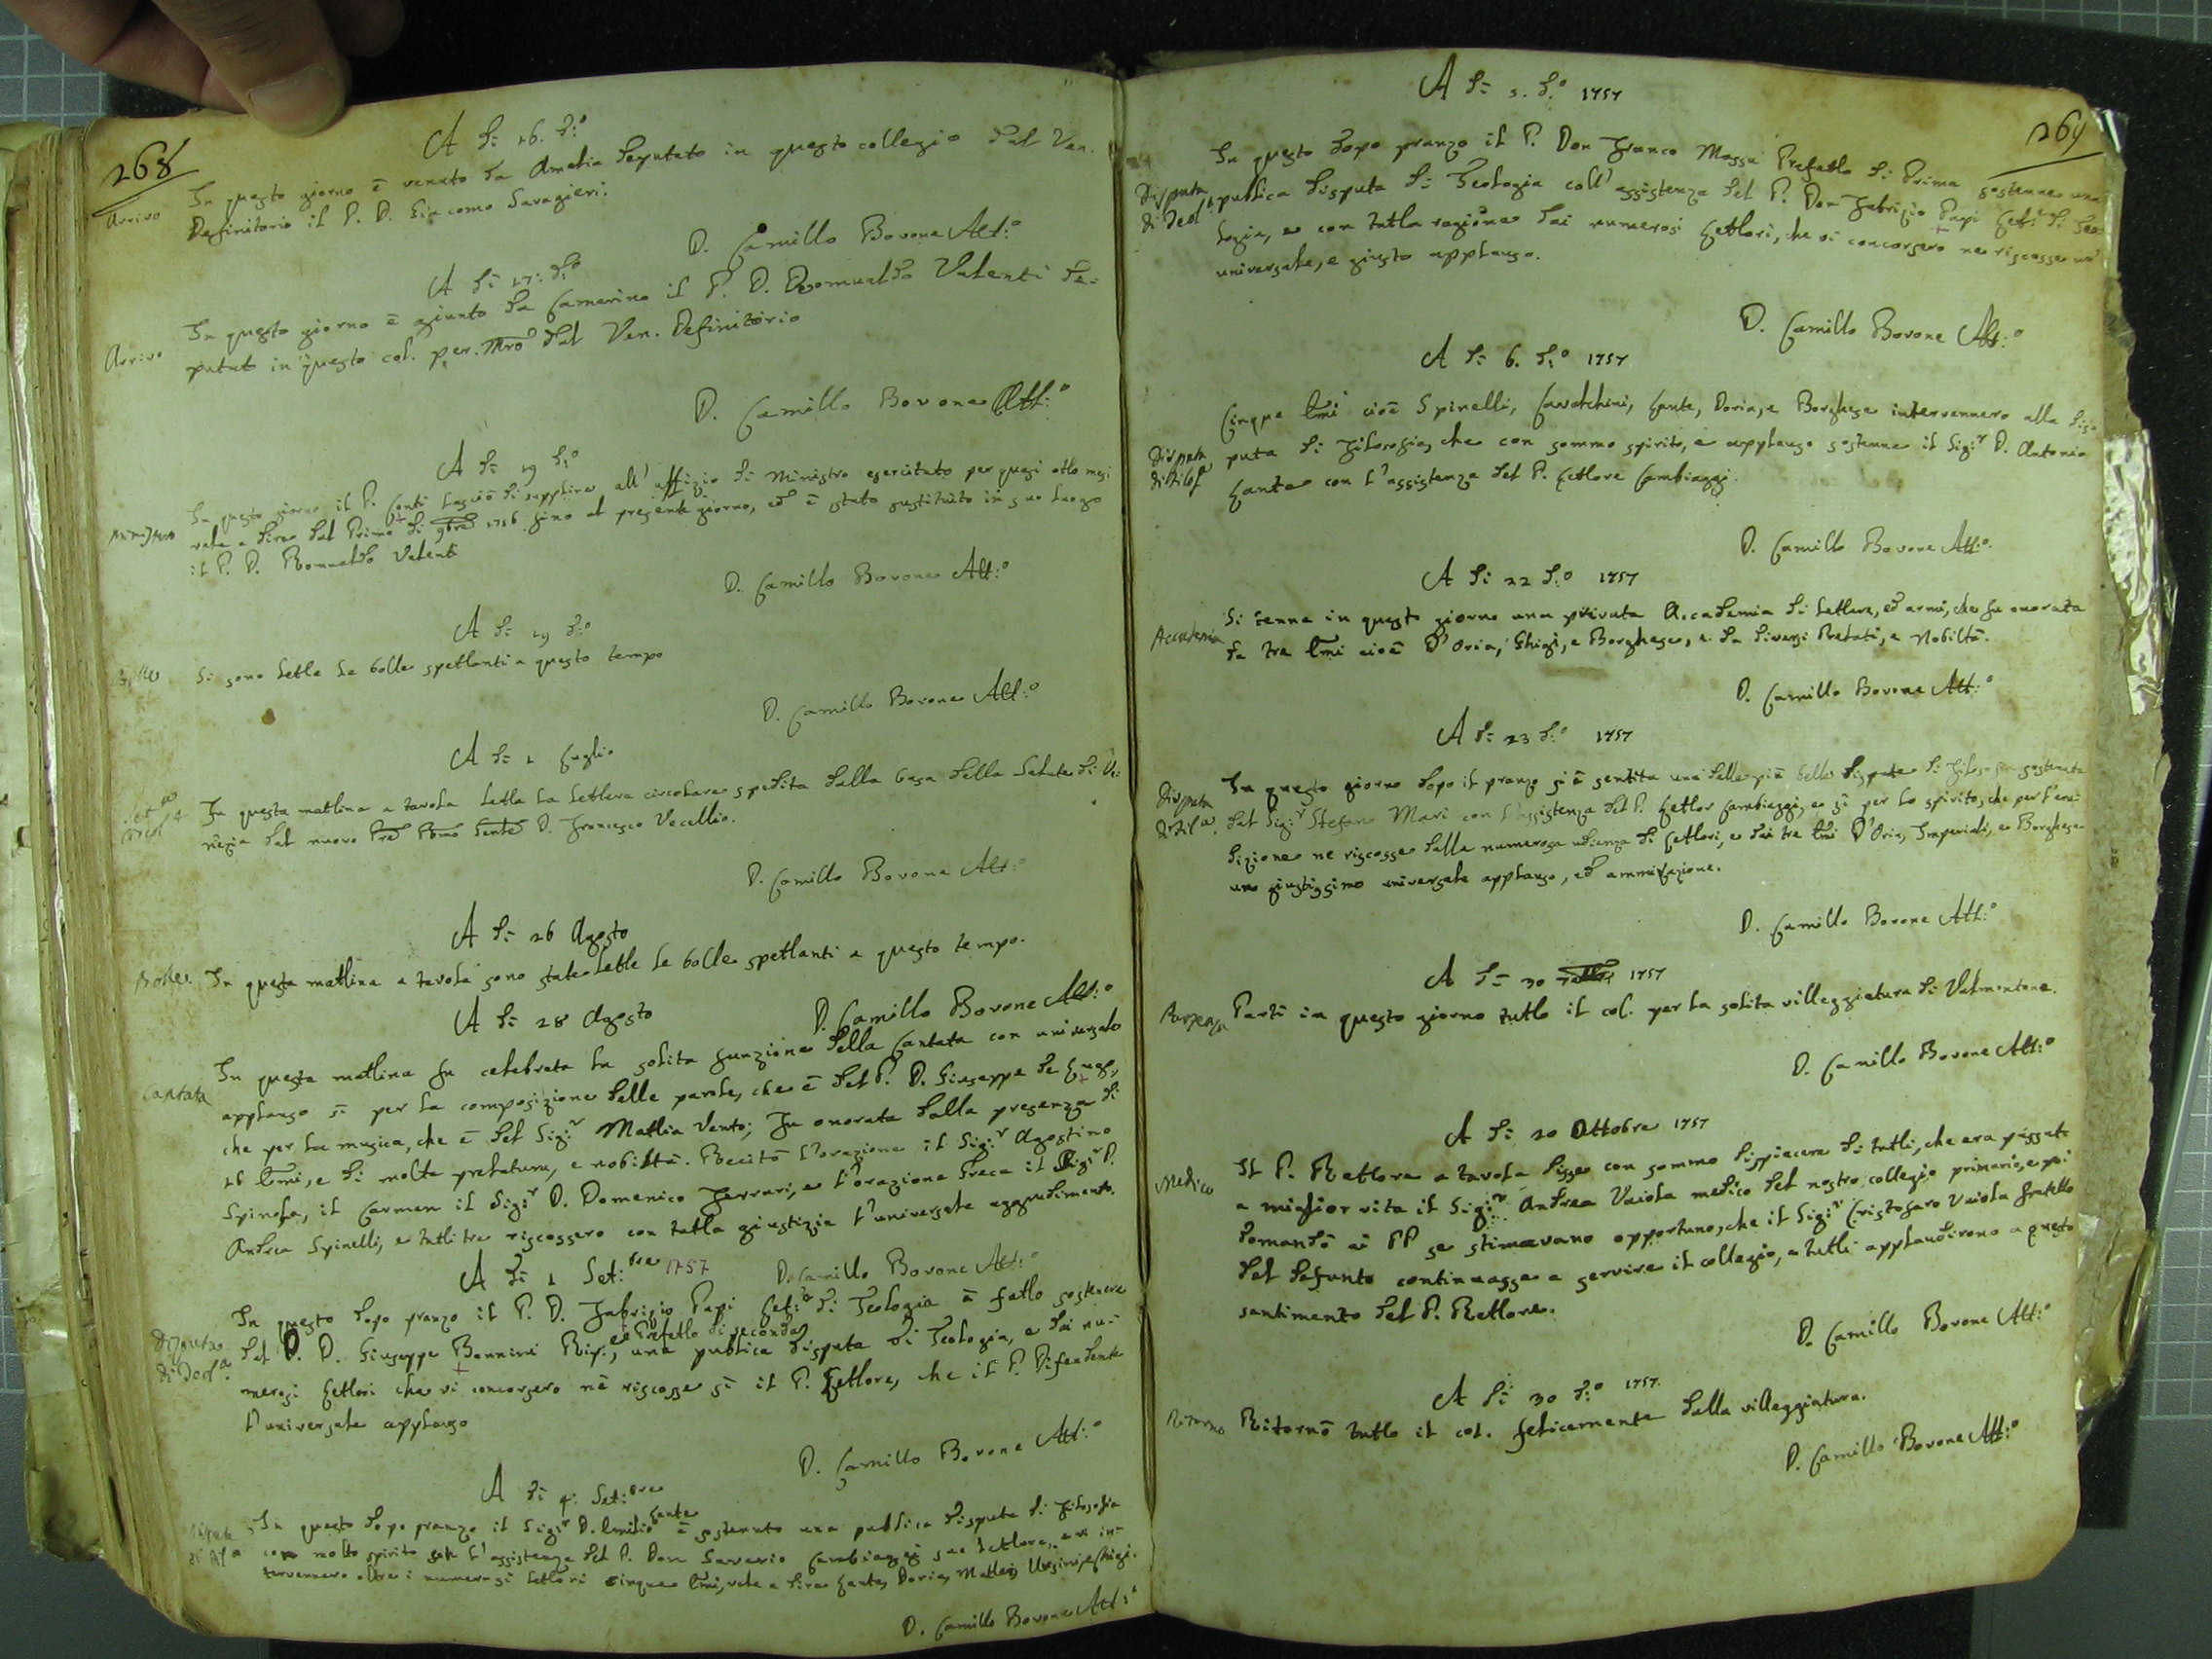 268
A dì 26. d:º
Arrivo
In questo giorno è venuto da Amelia deputato in questo collegio dal Ven.
Definitorio il P. D. Giacomo Savagieri.
D. Camillo Bovone Att:º
A dì 27: d:º
Arrivo
In questo giorno è giunto da Camerino il P. D. Romualdo Valenti de-
putato in questo col. per Mrõ dal Ven. Definitorio
D. Camillo Bovone Att:º
A dì 29 d:º
Ministro
In questo giorno il P. Conti lasciò di supplire all' uffizio di Ministro esercitato per quasi otto mesi
vale a dire dal Primo di 9bre 1756 sino al presente giorno, ed è stato sustituito in suo luogo
il P. D. Romualdo Valenti
D. Camillo Bovone Att:º
A dì 29 d:º
Bolle
Si sono lette le bolle spettanti a questo tempo
D. Camillo Bovone Att:º
A dì 2 Luglio
Let.ra circol.e
In questa mattina a tavola letta la lettera circolare spedita dalla Casa della Salute di Ve-
nezia dal nuovo Prẽ Rr̃mo Genle D. Francesco Vecellio.
D. Camillo Bovone Att:º
A dì 26 Agosto
Bolle
In questa mattina a tavola sono state lette le bolle spettanti a questo tempo.
D. Camillo Bovone Att:º
A dì 28 Agosto
Cantata
In questa mattina fu celebrata la solita funzione della Cantata con universale
applauso sì per la composizione delle parole, che è del P. D. Giuseppe de Lugo,
che per la musica, che è del Sig:r Mattia Vento; Fu onorata dalla presenza di
16 Em̃i, e di molta prelatura, e nobiltà. Recitò l'orazione il Sig:r Agostino
Spinola, il Carmen il Sig:r D. Domenico Ferrari, e l'orazione Greca il Sig:r D.
Andrea Spinelli, e tutti tre riscossero con tutta giustizia l'universale aggradimento.
D. Camillo Bovone Att:º
A dì 2 Set:bre 1757
Disputa di Teol.a
In questo dopo pranzo il P. D. Fabrizio Papi Let:re di Teologia à fatto sostenere
dal P. D. Giuseppe Bonnini Rip:, ed Prefetto di seconda una publica disputa di Teologia, e dai nu-
merosi Lettori che vi concorsero nè riscosse sì il P. Lettore, che il P. Difendente
l'universale applauso
D. Camillo Bovone Att:º
A dì 4: Set:bre
Disputa di Fil.a
In questo dopo pranzo il Sig:r D. Emilio Lante è sostenuto una publica disputa di Filosofia
con molto spirito coll' assistenza del P. Don Saverio Cambiaggi suo Lettore, e vi in-
tervennero oltre i numerosi Lettori cinque Em̃i, vale a dire Lante, Doria, Mattei, Ursini, e Chigi.
D. Camillo Bovone Att:º
269
A dì 5. d:º 1757
Disputa di Teol.a
In questo dopo pranzo il P. Don Franco Massa Prefetto di Prima sostenne una
publica disputa di Teologia coll' assistenza del P. Don Fabrizio Papi Let:re di Teo-
logia, e con tutta ragione dai numerosi Lettori, che vi concorsero ne riscosse un'
universale, e giusto applauso.
D. Camillo Bovone Att:º
A dì 6. d:º 1757
Disputa di Filos.a
Cinque Em̃i cioè Spinelli, Cavalchini, Lante, Doria, e Borghese intervennero alla dis-
puta di Filosofia, che con sommo spirito, e applauso sostenne il Sig:r D. Antonio
Lante con l'assistenza del P. Lettore Cambiaggi.
D. Camillo Bovone Att:º
A dì 22 d:º 1757
Accademia
Si tenne in questo giorno una privata Accademia di Lettere, ed armi, che fu onorata
da tre Em̃i cioè D'Oria, Chigi, e Borghese, e da diversi Prelati, e Nobiltà.
D. Camillo Bovone Att:º
A dì 23 d:º 1757
Disputa di Fil.a
In questo giorno dopo il pranzo si è sentita una delle più belle dispute di Filosofia sostenuta
dal Sig:r Stefano Mari con l'assistenza del P. Lettor Cambiaggi, e sì per lo spirito, che per l'eru-
dizione ne riscosse dalla numerosa udienza di Lettori, e dai tre Em̃i D'Oria, Imperiali, e Borghese
uno giustissimo universale applauso, ed ammirazione.
D. Camillo Bovone Att:º
A dì 30 7bre 1757
Partenza
Partì in questo giorno tutto il col. per la solita villeggiatura di Valmontone.
D. Camillo Bovone Att:º
A dì 20 Ottobre 1757
Medico
Il P. Rettore a tavola disse con sommo dispiacere di tutti, che era passato
a miglior vita il Sig:r Andrea Vaiola medico del nostro collegio primario, e poi
domandò ai PP se stimavano opportuno, che il Sig:r Cristofaro Vaiola fratello
del defunto continuasse a servire il collegio, e tutti applaudirono a questo
sentimento del P. Rettore.
D. Camillo Bovone Att:º
A dì 30 d:º 1757.
Ritorno
Ritornò tutto il col. felicemente dalla villeggiatura.
D. Camillo Bovone Att:º